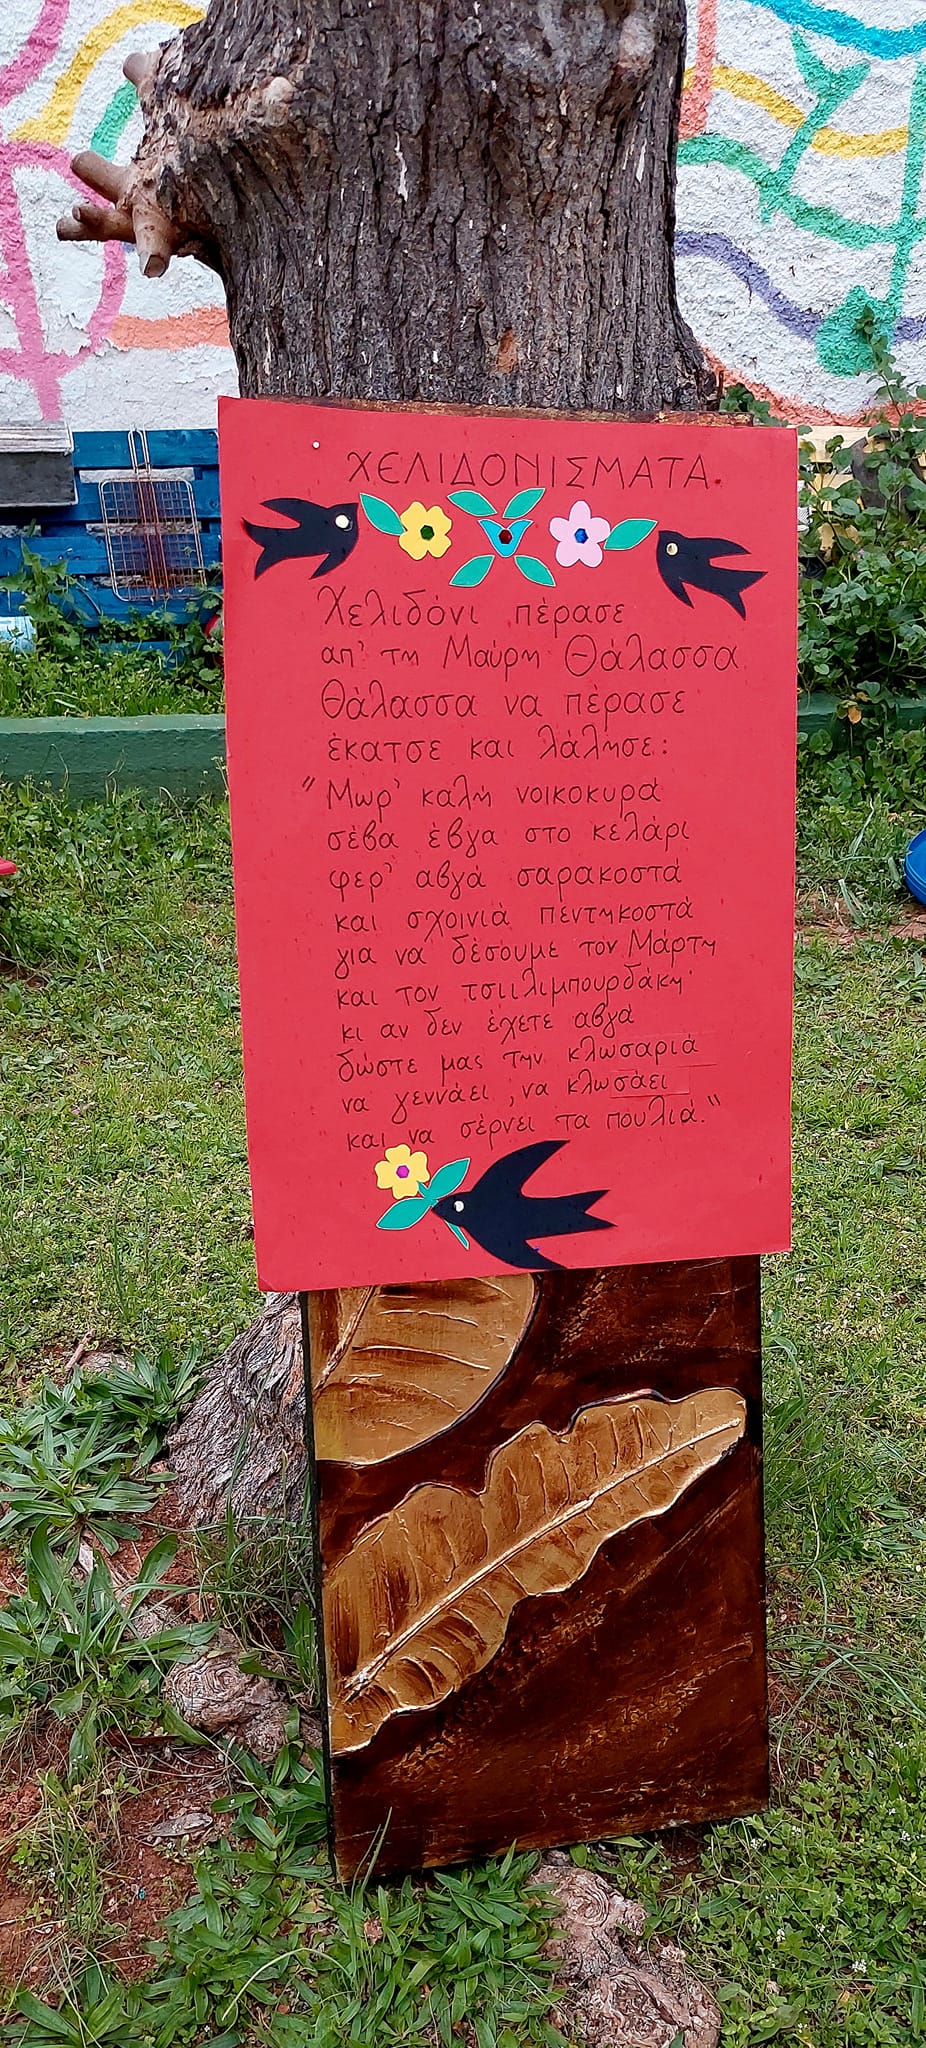 ΧΕΛΙΔΟΝΙΣΜΑΤΑ
Χελιδόνι πέρασε
απ' τη Μαύρη Θάλασσα
Θάλασσα να πέρασε
έκατσε και λάλησε:
"Μωρ' καλή νοικοκυρά
σέβα έβγα στο κελάρι
φερ' αβγά σαρακοστά
και σχοινιά πεντηκοστά
για να δέσουμε τον Μάρτη
και τον τσιιλιμπουρδάκη·
κι αν δεν έχετε αβγά
δώστε μας την κλωσαριά
να γεννάει, να κλωσάει
και να σέρνει τα πουλιά."